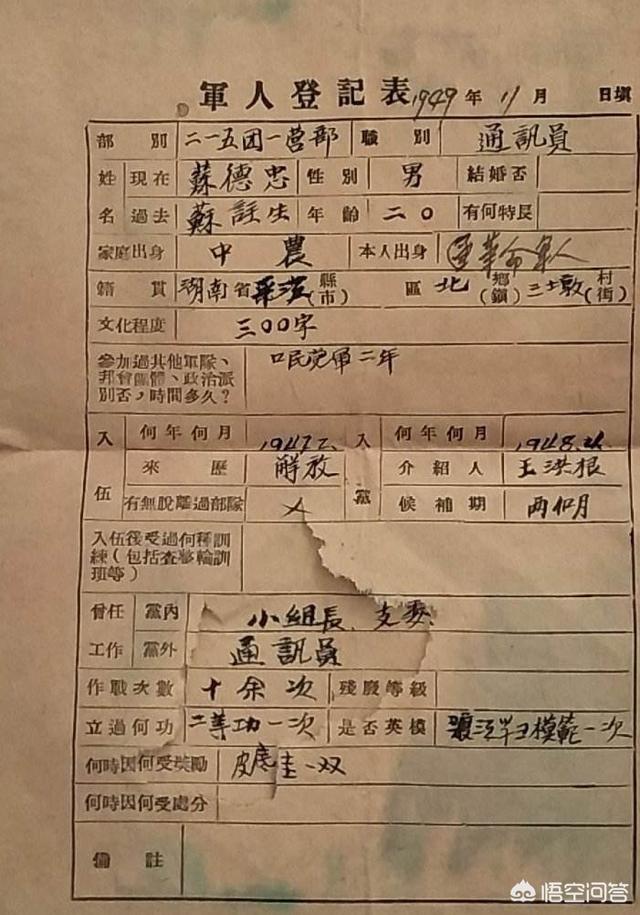 軍人登記表 1949年11月 日填
部別 二一五团一营部 職別 通訊員
姓 現在 蘇德忠 性別 男 結婚否
名 過去 蘇註生 年齡 二〇 有何特長
家庭出身 中農 本人出身 革命軍人
籍貫 湖南省 (縣市) 區 北 (鄉鎮) 三墩 (村街)
文化程度 三〇〇字
參加過其他軍隊、
邦會團體、政治派 口民党軍二年
別否,時間多久?
入伍 何年何月 1947. 入黨 何年何月 1948.
來歷 解放 介紹人 王洪根
有無脫離過部隊 ㄨ 候補期 两個月
入伍後受過何種訓
練(包括查整輪訓
班等)
曾任 黨內 小組長、支委
工作 黨外 通訊員
作戰次數 十余次 殘廢等級
立過何功 二等功一次 是否英模 模範一次
何時因何受獎勵 皮底圭一双
何時因何受處分
備註
悟空问答